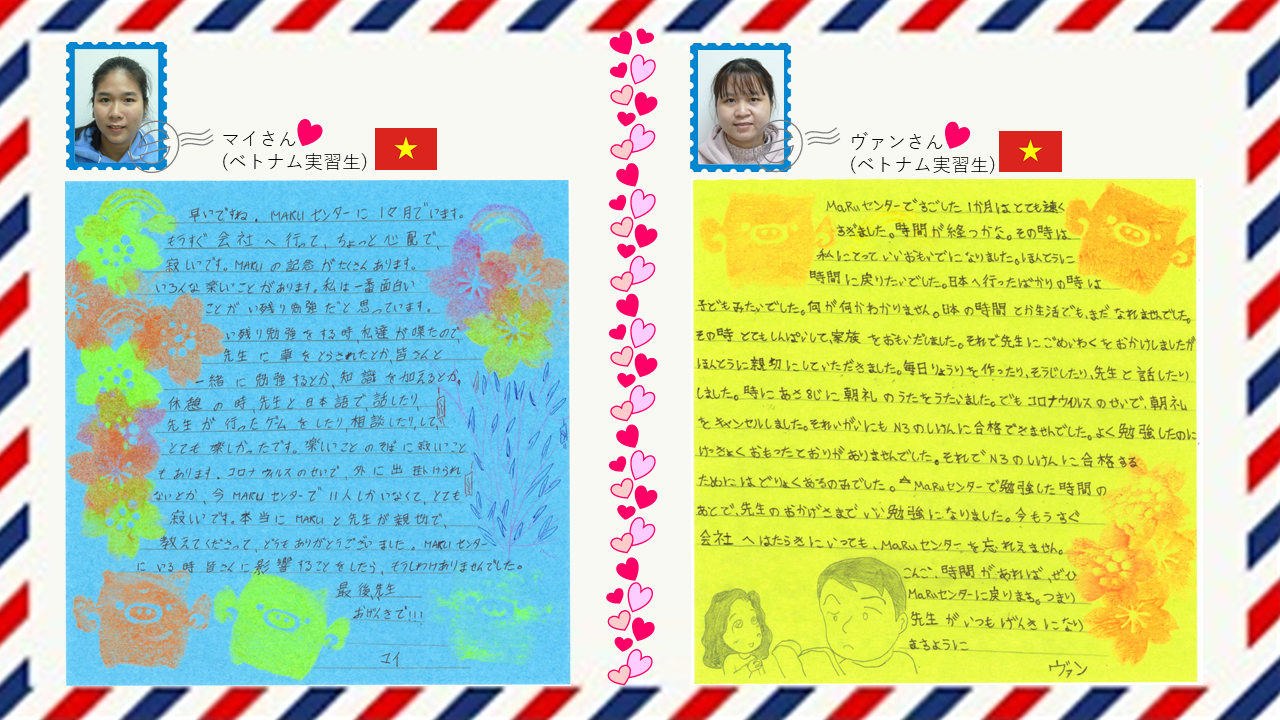 マイさん
(ベトナム実習生)
早いですね。MARUセンターに1ヶ月でいます。
もうすぐ会社へ行って、ちょっと心配で、
寂しいです。MARUの記念がたくさんあります。
いろんな楽しいことがあります。私は一番面白い
ことがい残り勉強だと思っています。
い残り勉強をする時私達が喋たので、
先生に章をとらされたとか皆さんと
一緒に勉強するとか、知識を加えるとか、
休憩の時、先生と日本語で、話したり、
先生が行ったゲムをしたり、相談したりして、
とても楽しかったです。楽しいことのそばに寂いこと
もあります。コロナウイルスのせいで、外に出掛けられ
ないとか、今MARUセンターで11人しかいなくて、とても
寂いです。本当にMARUと先生が親切で、
教えてくださって、どうもありがとうございました。MARUセンター
にいる時皆さんに影響することをしたら、もうしわけありませんでした。
最後、先生
おげんきで!!!
マイ
ヴァンさん
(ベトナム実習生)
MaRuセンターですごした1か月はとても速く
すぎました。時間が経つかな。その時は
私にとっていいおもいでになりました。ほんとうに
時間に戻りたいでした。日本へ行ったばかりの時は
子どもみたいでした。何が何かわかりません。日本の時間とか生活でも、まだなれませんでした。
その時とてもしんぱいして、家族をおもいだしました。それで先生にごめいわくをおかけしましたが
ほんとうに親切にしていただきました。毎日りょうりを作ったり、そうじしたり、先生と話したり
しました。時にあさ8じに朝礼のうたをうたいました。でもコロナウイルスのせいで、朝礼
をキャンセルしました。それいがいにもN3のしけんに合格できませんでした。よく勉強したのに
けっきょくおもったとおりがありませんでした。それでN3のしけんに合格する
ためにはどりょくあるのみでした。MaRuセンターで勉強した時間の
あとで、先生のおかげさまでいい勉強になりました。今もうすぐ
会社へはたらきにいっても、MaRuセンターを忘れえません。
こんご、時間があれば、ぜひ
MaRuセンターに戻ります。つまり
先生がいつもげんきになり
ますように
ヴァン